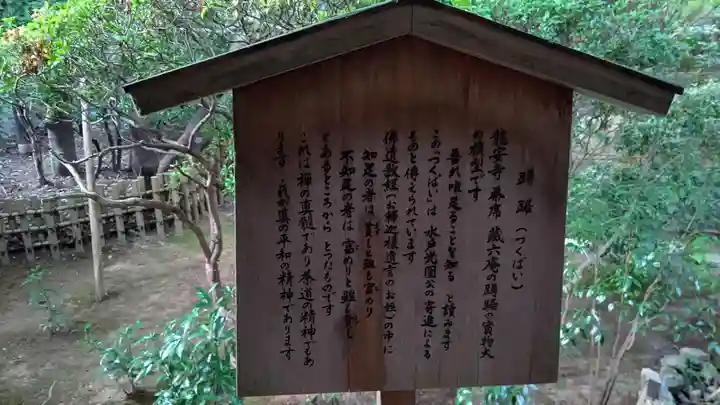 蹲踞 (つくばい)
龍安寺 茶席 蔵六庵の蹲踞の実物大
の模型です
吾れ唯足ることを知る と読みます
この“つくばい”は 水戸光圀公の寄進による
ものと伝えられています
佛遺教経(お釈迦様遺言のお経)の中に
知足の者は 貧しと雖も富めり
不知足の者は 富めりと雖も貧し
とあるところから とったものです
これは 禅の真髄であり茶道の精神でもあ
ります これが真の平和の精神であります